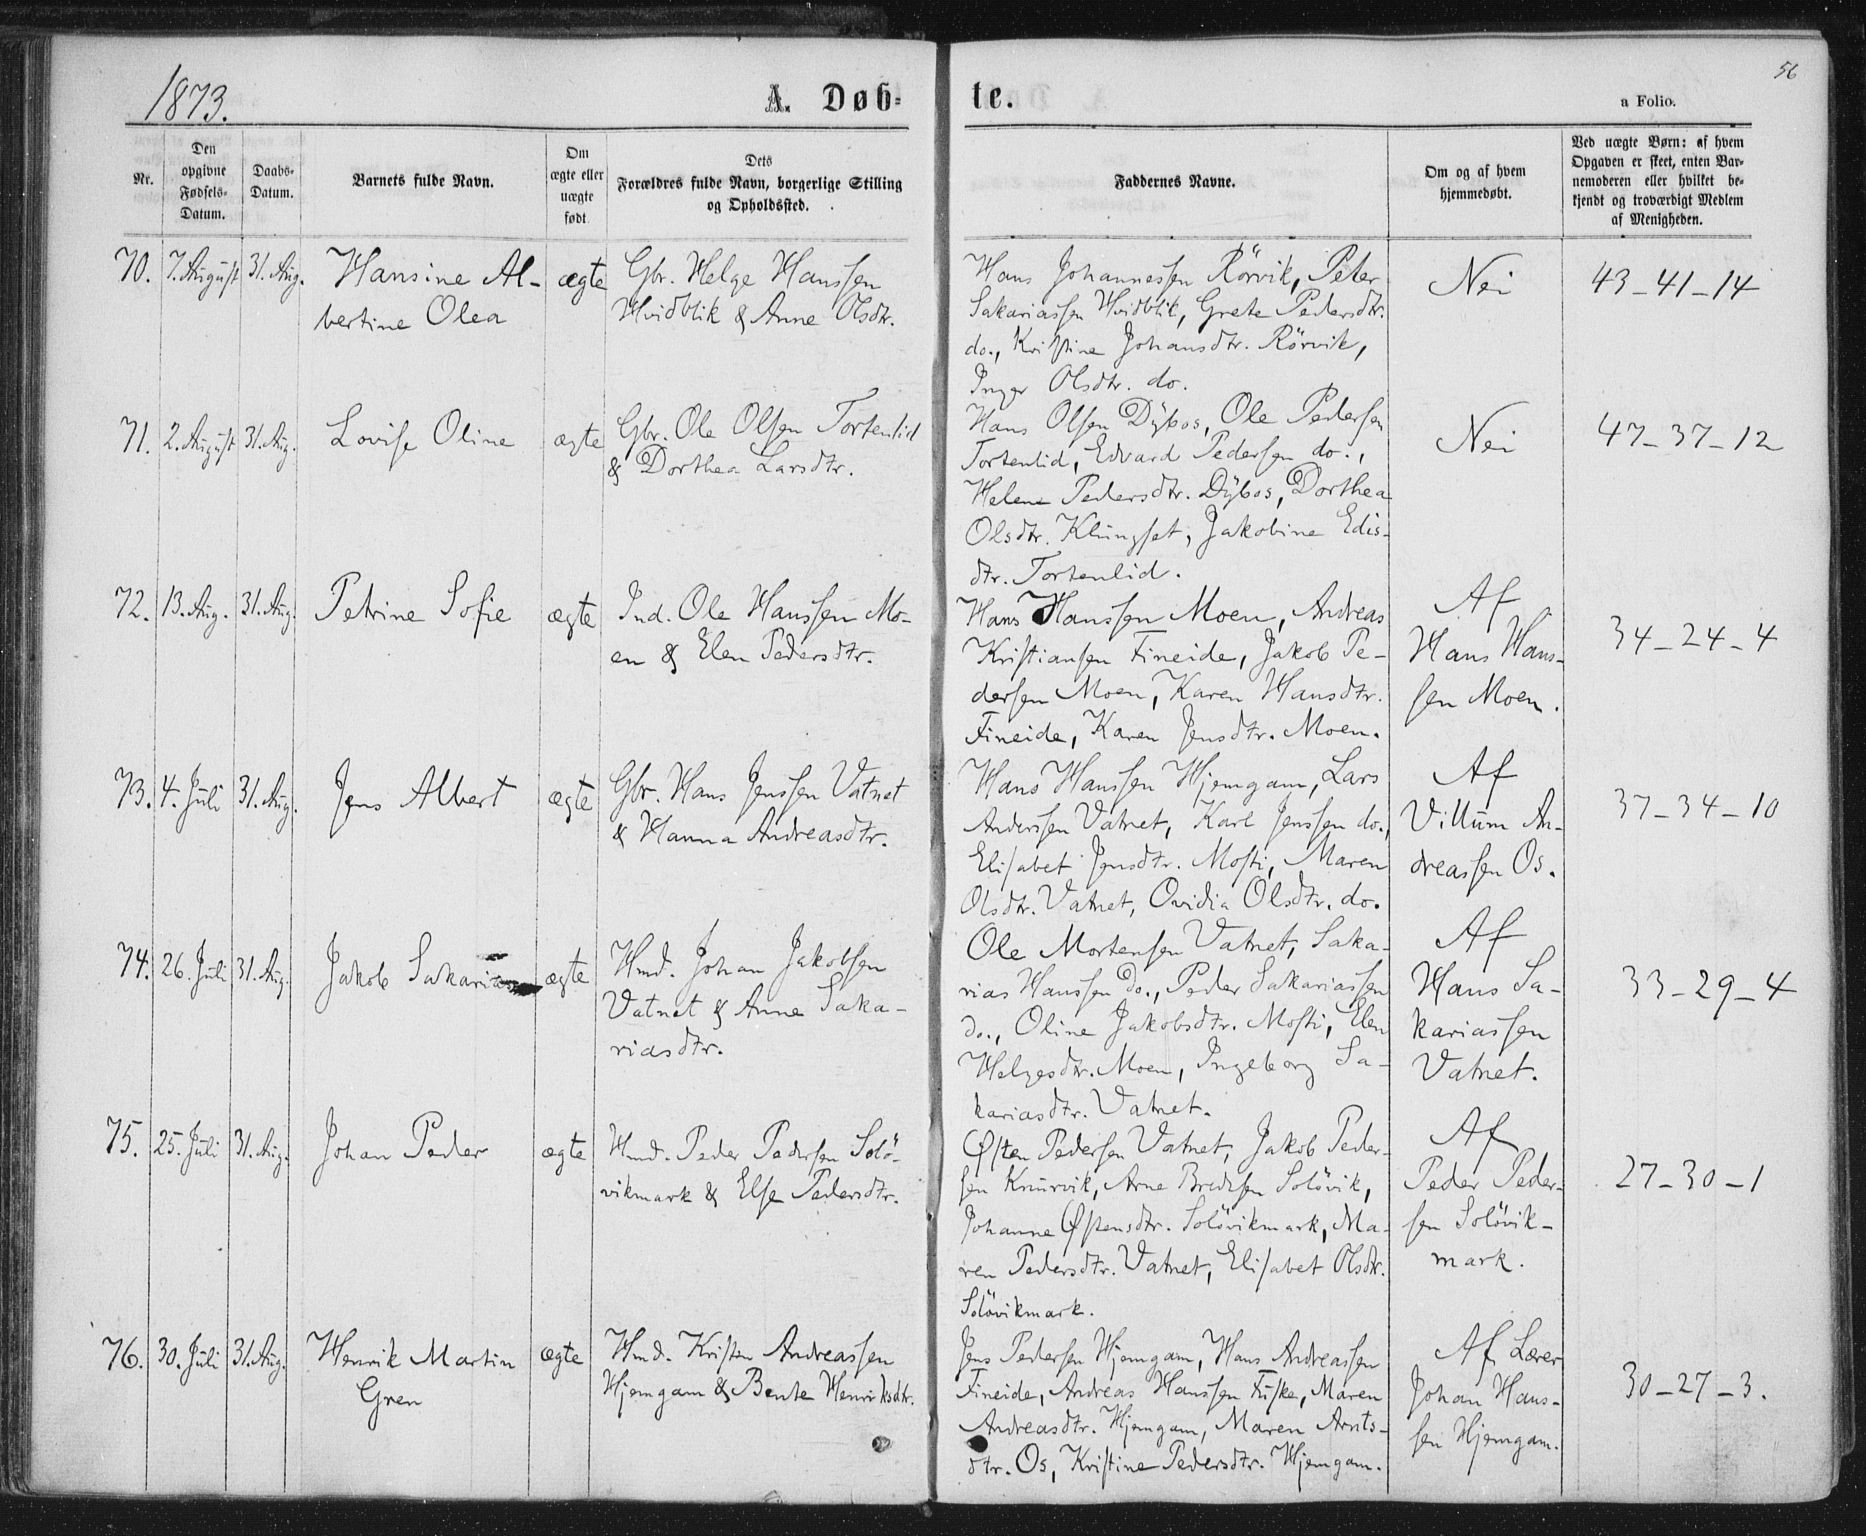 1873.
A. Døb=
te.
56
a Folio.
Nr.
Den
opgivne
Fødsels=
Datum.
Daabs=
Datum.
Barnets fulde Navn.
Om
ægte eller
uægte
født.
Dets
Forældres fulde Navn, borgerlige Stilling
og Opholdssted.
Faddernes Navne.
Om og af hvem
hjemmedøbt.
Ved uægte Børn: af hvem
Opgaven er skeet, enten Bar=
nemoderen eller hvilket be=
kjendt og troværdigt Medlem
af Menigheden.
70. 7. August 31. Aug.
Hansine Al-
bertine Olea
ægte
Gbr. Helge Hanssen
Hvidblik & Anne Olsdtr.
Hans Johannessen Rörvik, Peter
Sakariassen Hvidblik, Grete Pedersdtr.
do., Kristine Johansdtr. Rörvik,
Inger Olsdtr. do.
Nei
43-41-14
71. 2. August 31. Aug.
Lovise Oline
ægte
Gbr. Ole Olsen Tortenlid
& Dorthea Larsdtr.
Hans Olsen Dybos, Ole Pedersen
Tortenlid, Edvard Pedersen do.,
Helene Pedersdtr. Dybos, Dorthea
Olsdtr. Klungset, Jakobine Edis-
dtr. Tortenlid.
Nei
47-37-12
72. 13. Aug. 31. Aug.
Petrine Sofie
ægte
Ind. Ole Hanssen Mo-
en & Elen Pedersdtr.
Hans Hanssen Moen, Andreas
Kristiansen Fineide, Jakob Pe-
dersen Moen, Karen Hansdtr.
Fineide, Karen Jensdtr. Moen.
Af
Hans Hans-
sen Moen.
34-24-4
73. 4. Juli 31. Aug.
Jens Albert
ægte
Gbr. Hans Jenssen Vatnet
& Hanna Andreasdtr.
Hans Hanssen Hjemgam, Lars
Anderssen Vatnet, Karl Jenssen do.,
Elisabet Jensdtr. Mosti, Maren
Olsdtr. Vatnet, Ovidia Olsdtr. do.
Af
Villum An-
dreassen Os.
37-34-10
74. 26. Juli 31. Aug.
Jakob Sakarias
ægte
Hmd. Johan Jakobsen
Vatnet & Anne Saka-
riasdtr.
Ole Mortensen Vatnet, Saka-
rias Hanssen do., Peder Sakariassen
do., Oline Jakobsdtr. Mosti, Elen
Helgesdtr. Moen, Ingeborg Sa-
kariasdtr. Vatnet.
Af
Hans Sa-
kariassen
Vatnet.
33-29-4
75. 25. Juli 31. Aug.
Johan Peder
ægte
Hmd. Peder Pedersen Solö-
vikmark & Else Pedersdtr.
Østen Pedersen Vatnet, Jakob Peder-
sen Knurvik, Arne Bredesen Solövik,
Johanne Østensdtr. Solövikmark, Ma-
ren Pedersdtr. Vatnet, Elisabet Olsdtr.
Solövikmark.
Af
Peder Peder-
sen Solövik-
mark.
27-30-1
76. 30. Juli 31. Aug.
Henrik Martin
Gren
ægte
Hmd. Kristen Andreassen
Hjemgam & Bente Henriksdtr.
Jens Pedersen Hjemgam, Hans Andreassen
Fineide, Andreas Hanssen Fuske, Maren
Andreasdtr. Hjemgam, Maren Arnts-
dtr. Os, Kristine Pedersdtr. Hjemgam.
Af Lærer
Johan Hans-
sen Hjemgam.
30-27-3.